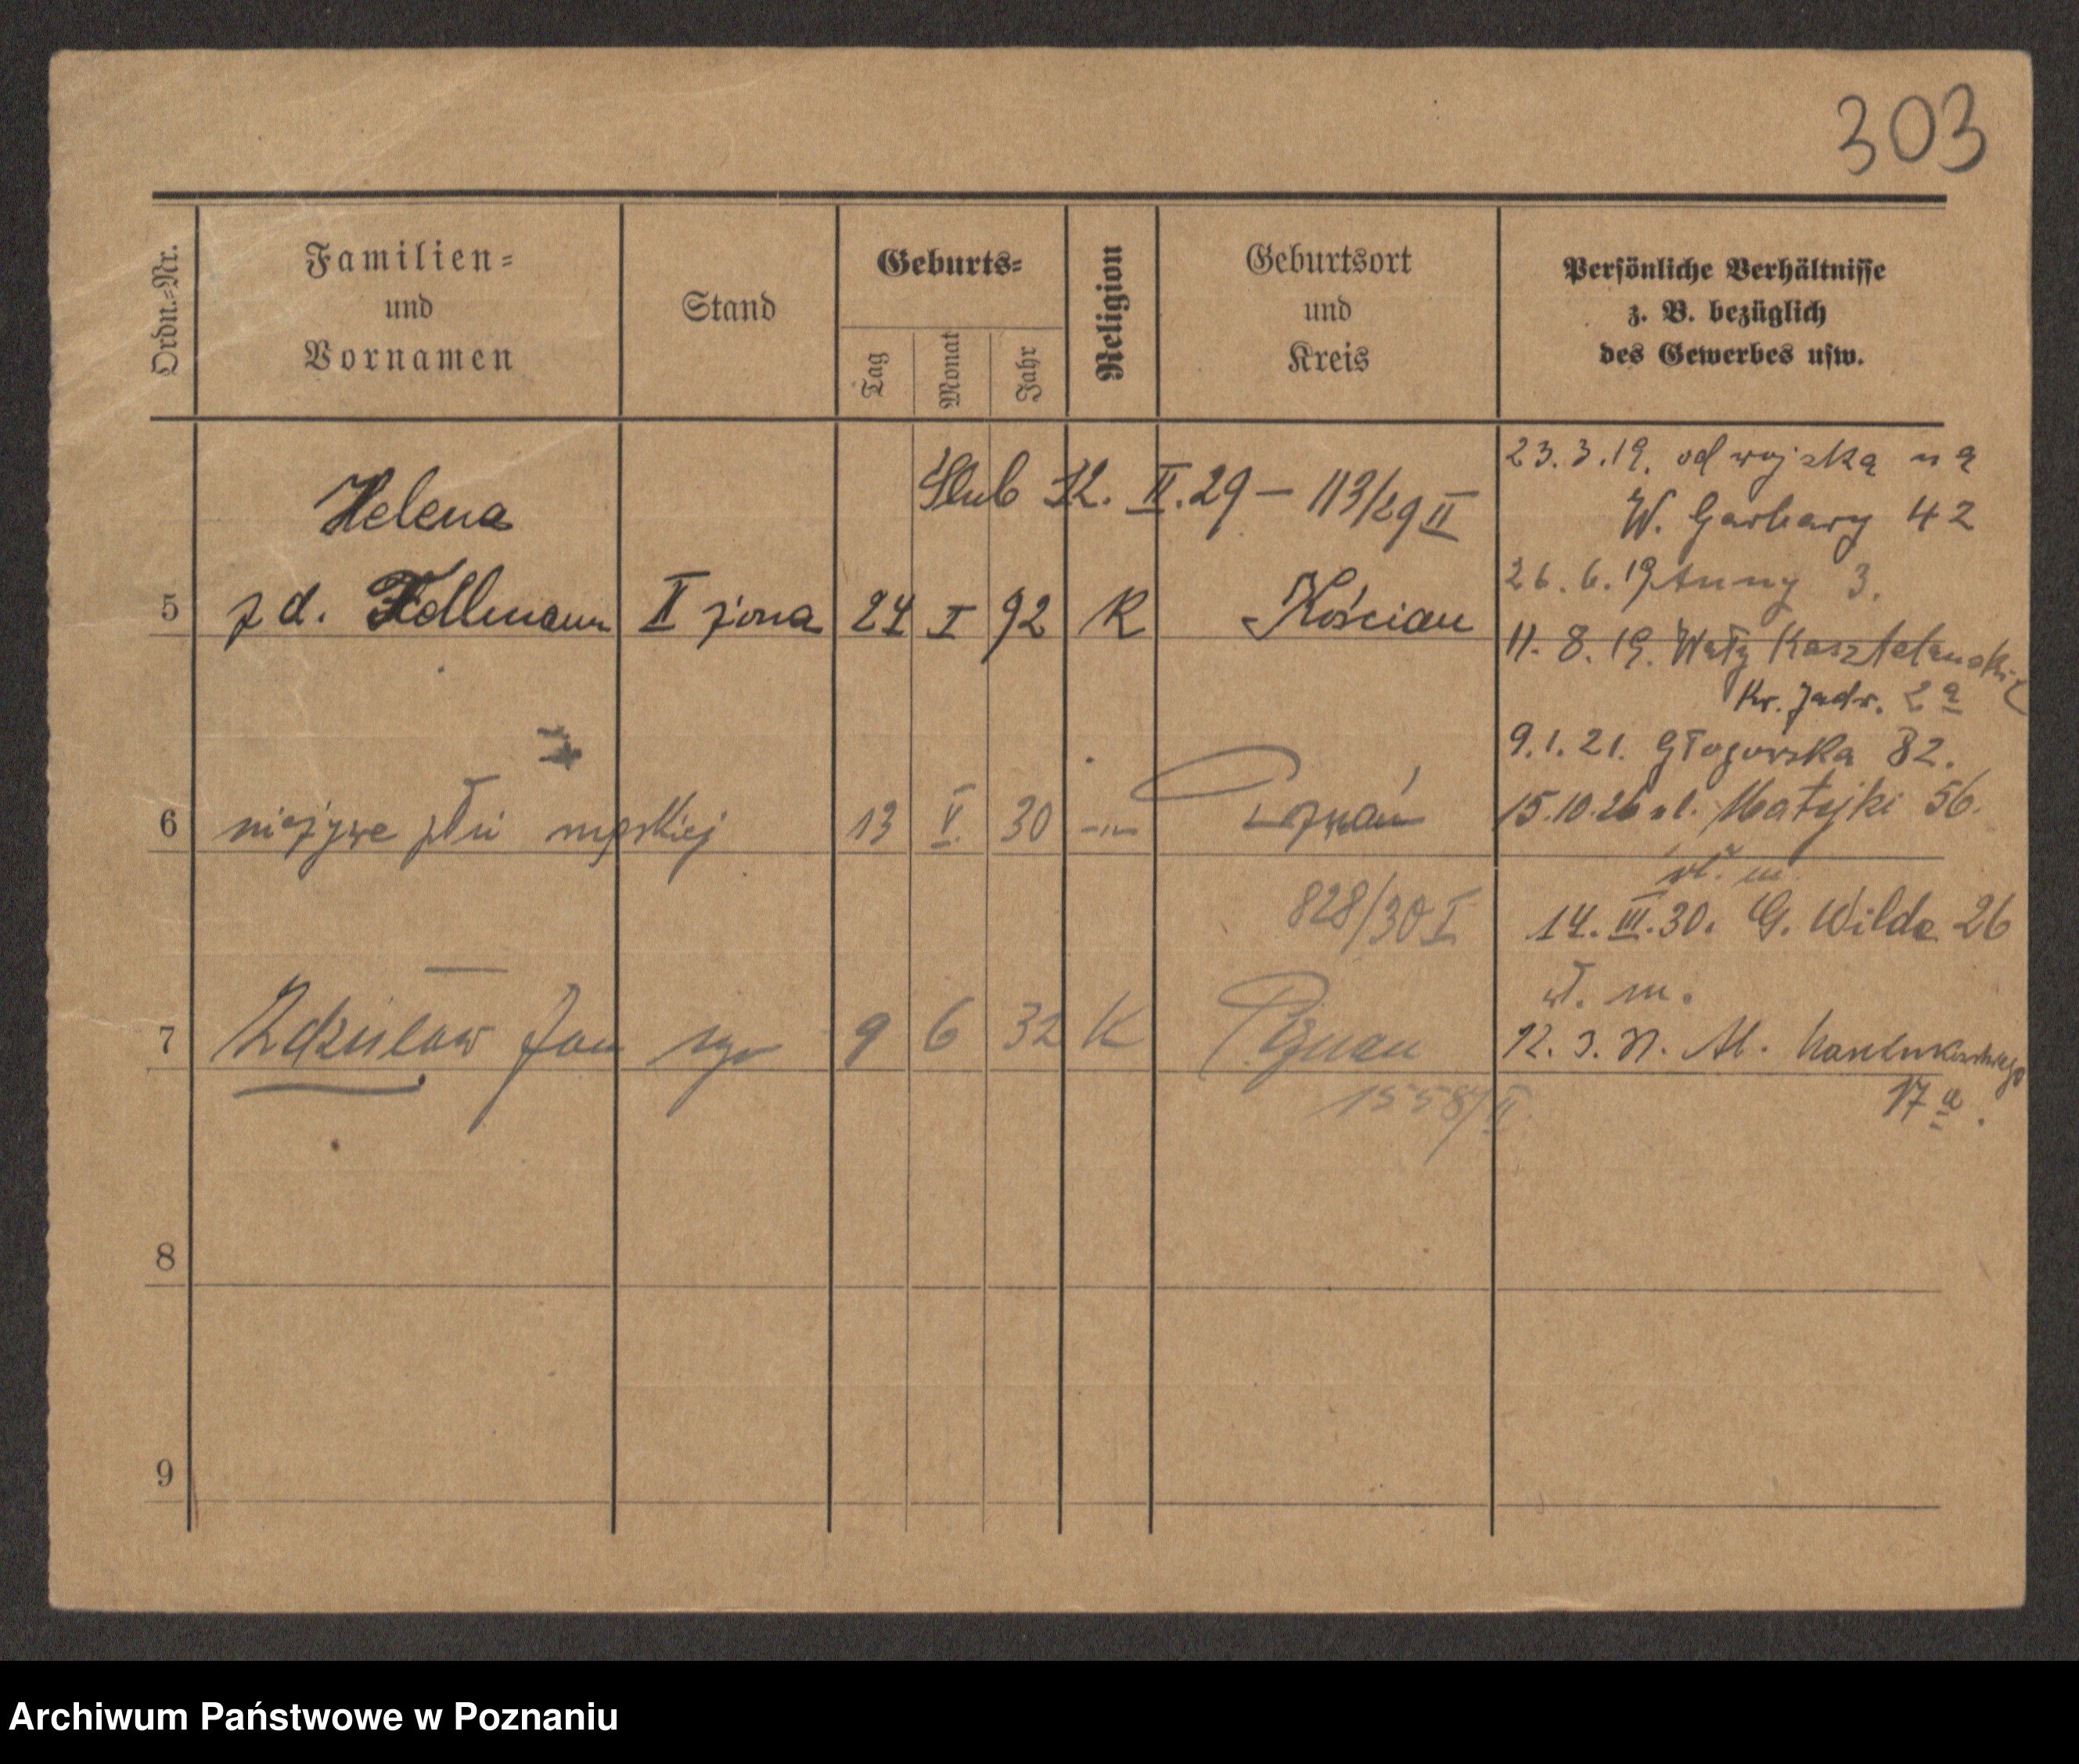 303
Ordn.=Nr.
Familien=
und
Vornamen
Stand
Geburts=
Tag
Monat
Jahr
Religion
Geburtsort
und
Kreis
Persönliche Verhältnisse
z. B. bezüglich
des Gewerbes usw.
Ślub 12. II. 29 — 113/29 II
Helena
5 z d. Follmann II żona 24 I 92 K Kościan
6 nieżywe płci męskiej 13 V. 30 -"- Poznań
828/30 I
7 Zdzisław Jan syn 9 6 32 K Poznań
1558/II
8
9
23.3.19. od wojska na
W. Garbary 42
26.6.19 Anny 3.
11.8.19. Wały Kasztelańskie
Kr. Jadw. 2a
9.1.21. Głogowska 82.
15.10.26 ul. Matejki 56.
wł. m.
14. III. 30. G. Wilda 26
wł. m.
12. 3. 31. Al. Marcinkowskiego
17 a.
Archiwum Państwowe w Poznaniu